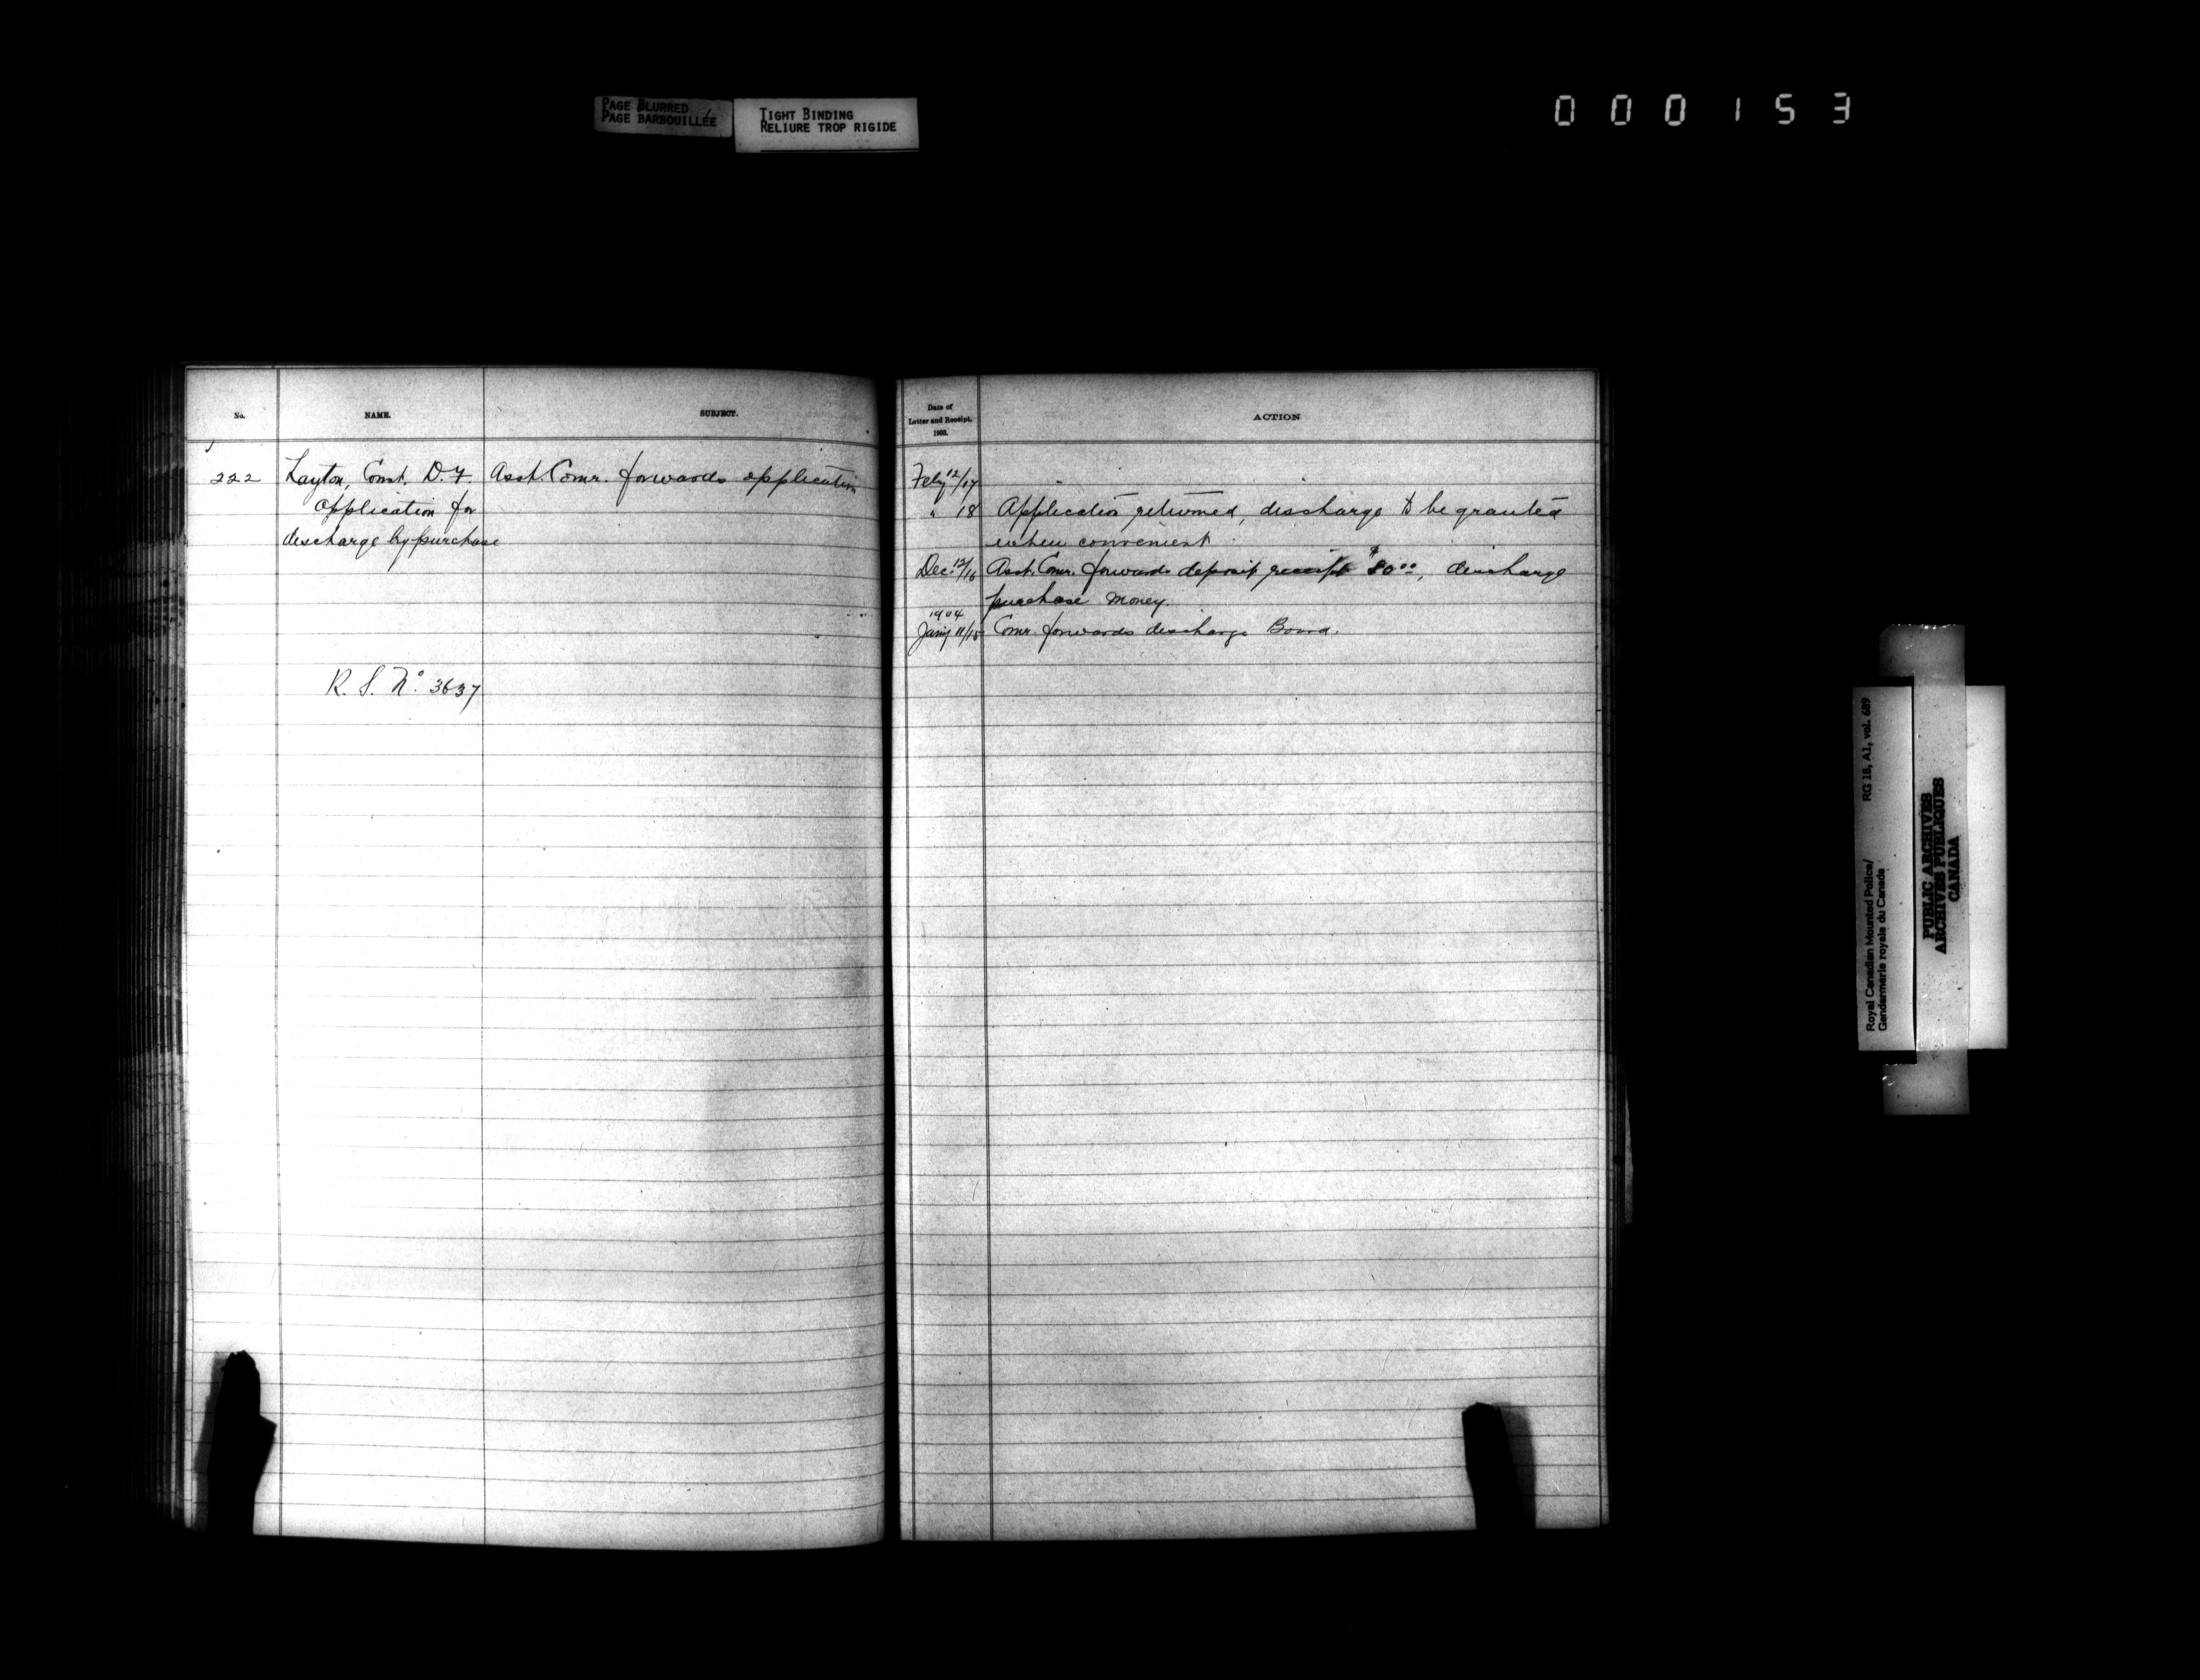 PAGE BLURRED
PAGE BARBOUILLÉE
TIGHT BINDING
RELIURE TROP RIGIDE
000153
No.
NAME.
SUBJECT.
222
Layton, Const. D.F.
Application for
discharge by purchase
Asst. Comr. forwards application
R. S. No. 3637
Date of
Letter and Receipt.
1903.
ACTION
Feby 12/17
" 18 Application returned, discharge to be granted
when convenient.
Dec. 12/16 Asst. Comr. forwards deposit receipt $80.00, discharge
purchase money.
1904
Jany 11/15 Comr. forwards discharge Board.
Royal Canadian Mounted Police/ RG 18, A1, vol. 689
Gendarmerie royale du Canada
PUBLIC ARCHIVES
ARCHIVES PUBLIQUES
CANADA